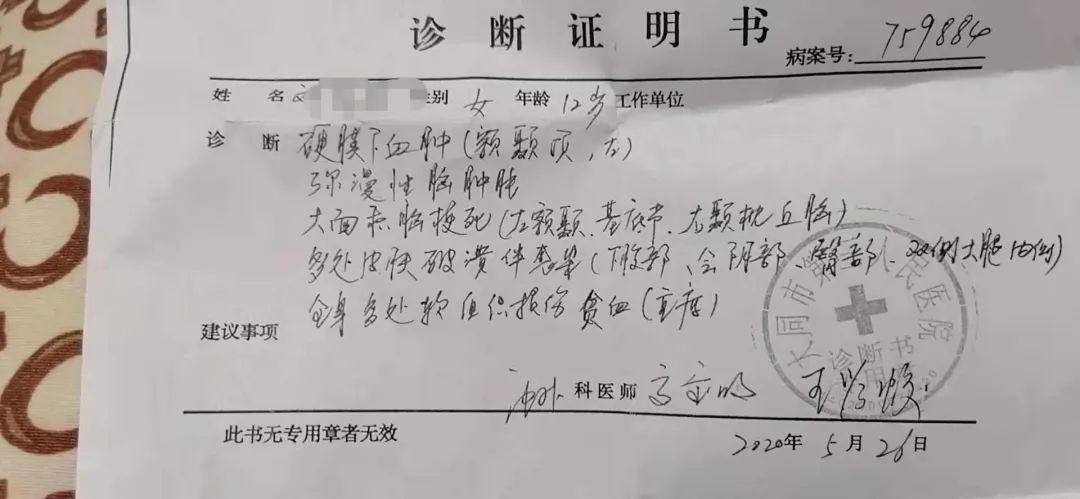 诊断证明书
病案号: 759884
姓名 性别 女 年龄 12岁 工作单位
诊断 硬膜下血肿(额颞顶、左)
弥漫性脑肿胀
大面积脑梗死(左额颞、基底节、右颞枕丘脑)
多处皮肤破溃伴感染(下腹部、会阴部、臀部、双侧大腿内侧)
全身多处软组织损伤 贫血(重度)
建议事项
大同市 人民医院
诊断书
专用章
科医师
此书无专用章者无效
2020年5月26日